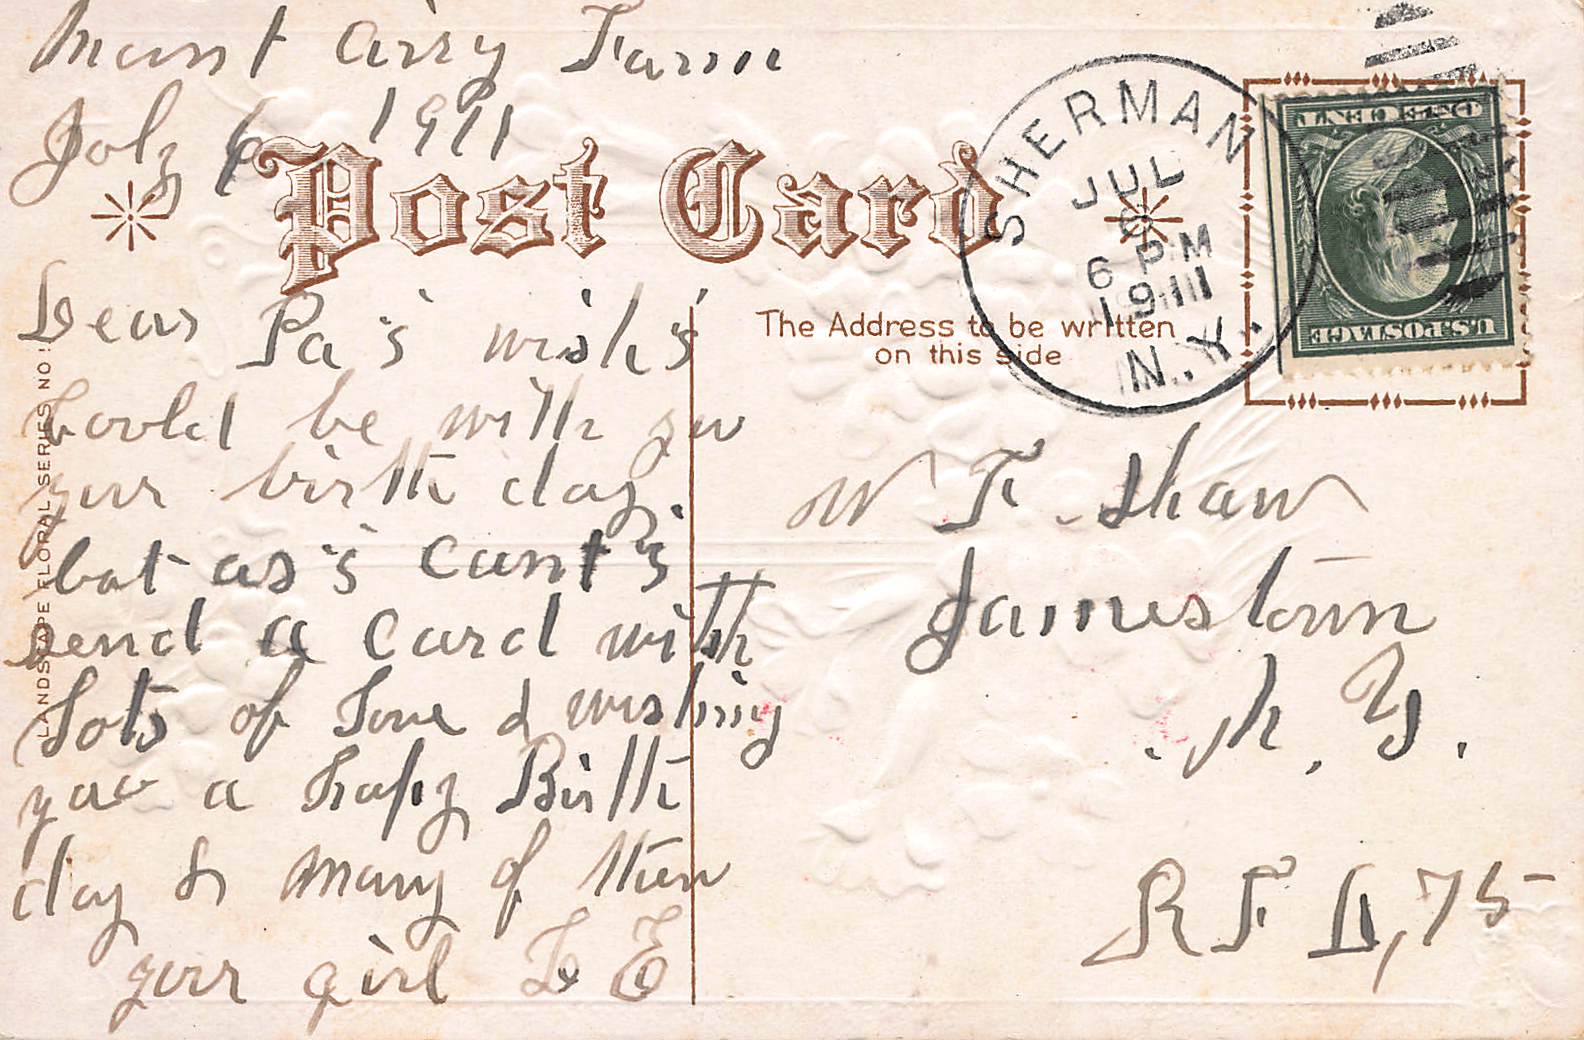 Mount Airy Farm
July 6 1911
Post Card
SHERMAN
JUL
6
6 PM
1911
N.Y.
ONE CENT
U.S. POSTAGE
The Address to be written
on this side
LANDSCAPE FLORAL SERIES NO 1
Dear Pa i wish i
Could be with you
your birth day.
but as i cant i
send a Card with
Lots of Love & wishing
you a hapy Birth
day & many of them
your girl L E
W F. Shaw
Jamestown
N. Y.
R F D, 75